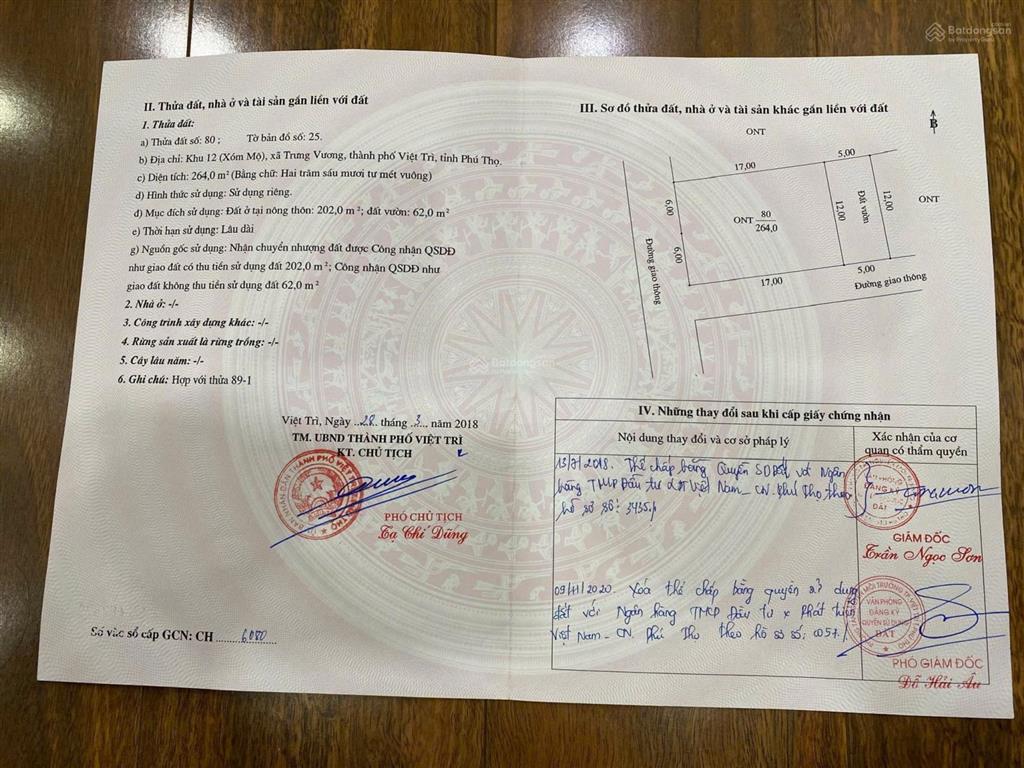 Batdongsan
by PropertyGuru
II. Thửa đất, nhà ở và tài sản gắn liền với đất
1. Thửa đất:
a) Thửa đất số: 80 ; Tờ bản đồ số: 25.
b) Địa chỉ: Khu 12 (Xóm Mộ), xã Trưng Vương, thành phố Việt Trì, tỉnh Phú Thọ.
c) Diện tích: 264,0 m² (Bằng chữ: Hai trăm sáu mươi tư mét vuông)
d) Hình thức sử dụng: Sử dụng riêng.
đ) Mục đích sử dụng: Đất ở tại nông thôn: 202,0 m²; đất vườn: 62,0 m²
e) Thời hạn sử dụng: Lâu dài
g) Nguồn gốc sử dụng: Nhận chuyển nhượng đất được Công nhận QSDĐ
như giao đất có thu tiền sử dụng đất 202,0 m²; Công nhận QSDĐ như
giao đất không thu tiền sử dụng đất 62,0 m²
2. Nhà ở: -/-
3. Công trình xây dựng khác: -/-
4. Rừng sản xuất là rừng trồng: -/-
5. Cây lâu năm: -/-
6. Ghi chú: Hợp với thửa 89-1
Việt Trì, Ngày 28 tháng 3 năm 2018
TM. UBND THÀNH PHỐ VIỆT TRÌ
KT. CHỦ TỊCH
PHÓ CHỦ TỊCH
Tạ Chí Dũng
Số vào sổ cấp GCN: CH 6080
III. Sơ đồ thửa đất, nhà ở và tài sản khác gắn liền với đất
B
ONT
17,00
5,00
6,00
6,00
ONT 80
264,0
12,00
Đất vườn
12,00
ONT
17,00
5,00
Đường giao thông
Đường giao thông
Batdongsan
IV. Những thay đổi sau khi cấp giấy chứng nhận
Nội dung thay đổi và cơ sở pháp lý
Xác nhận của cơ
quan có thẩm quyền
13/7/2018. Thế chấp bằng Quyền SDĐất với Ngân
hàng TMCP Đầu tư Việt Nam - CN. Phú Thọ theo
hồ sơ số: 3435./
ĐĂNG KÝ
ĐẤT
GIÁM ĐỐC
Trần Ngọc Sơn
09/11/2020. Xóa thế chấp bằng quyền sử dụng
đất với Ngân hàng TMCP Đầu tư & Phát triển
Việt Nam - CN. Phú Thọ theo hồ sơ số: 0057./
VĂN PHÒNG
ĐĂNG KÝ
QUYỀN SỬ DỤNG
ĐẤT
PHÓ GIÁM ĐỐC
Đỗ Hải Âu